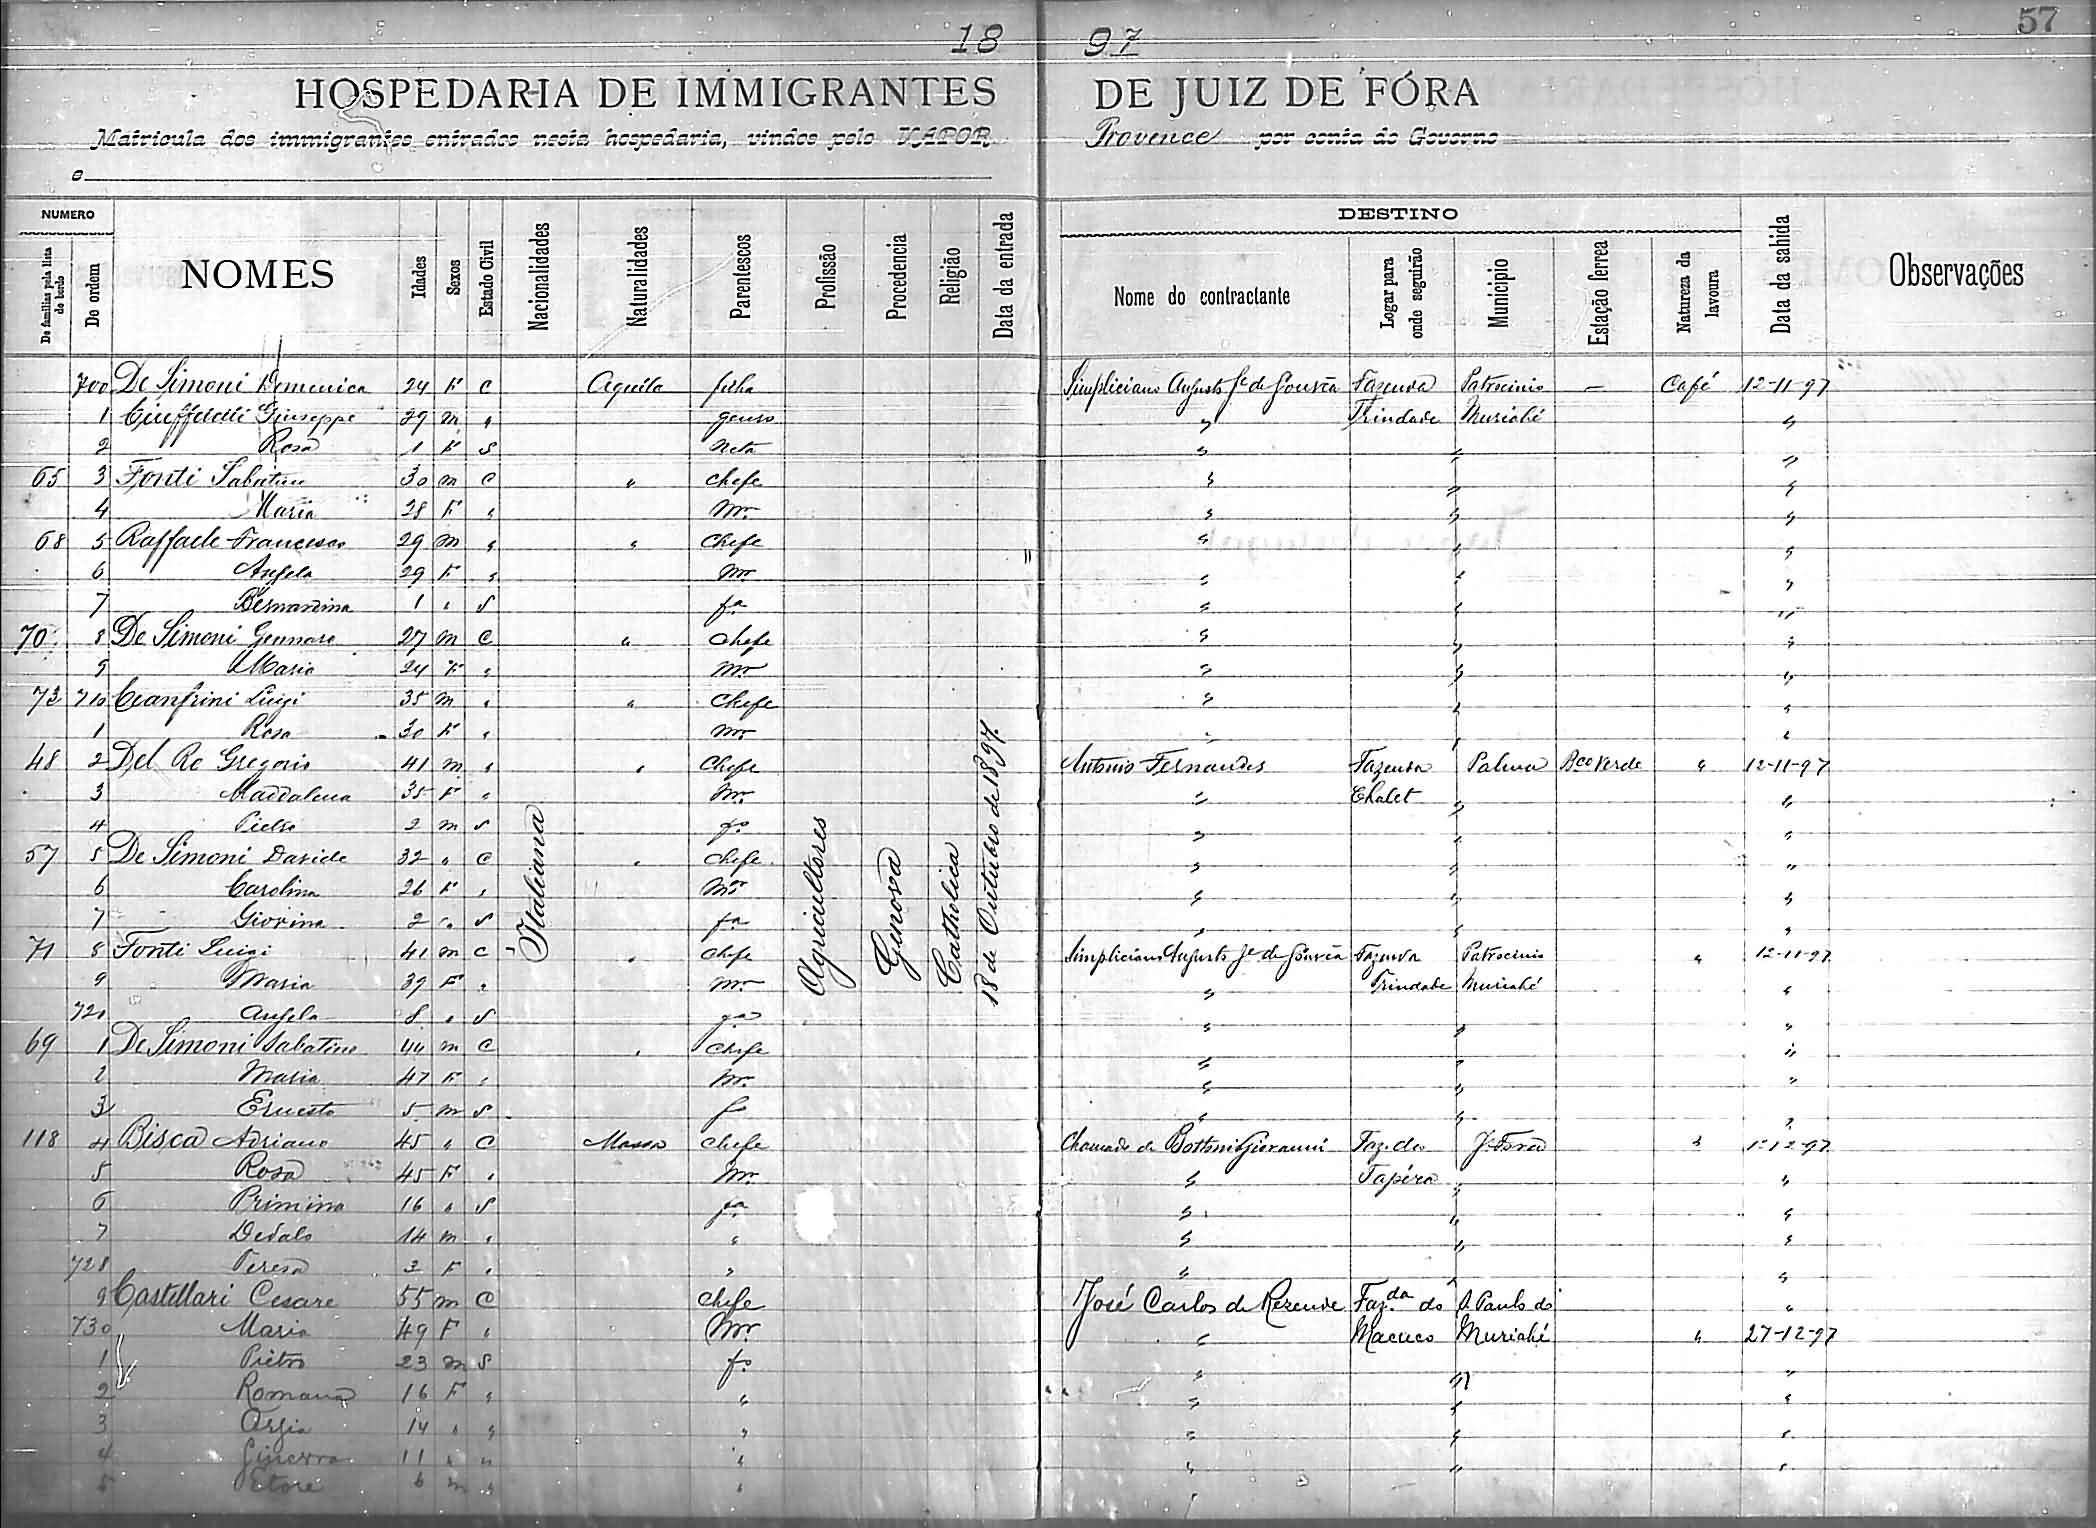 18 97
57
HOSPEDARIA DE IMMIGRANTES DE JUIZ DE FÓRA
Matricula dos immigrantes entrados nesta hospedaria, vindos pelo VAPOR Provence por conta do Governo
e
NUMERO
De familias pela lista de bordo
De ordem
NOMES
Idades
Sexos
Estado Civil
Nacionalidades
Naturalidades
Parentescos
Profissão
Procedencia
Religião
Data da entrada
DESTINO
Nome do contractante
Logar para onde seguirão
Municipio
Estação ferrea
Natureza da lavoura
Data da sahida
Observações
700 De Simoni Domenica 24 F C Aquila filha Simpliciano Augusto Je de Gouvêa Fazenda Patrocinio — Café 12-11-97
1 Giuseppe 29 m " genro " Trindade Muriahé "
2 Rosa 1 F S Neta " " "
65 3 Fonti Sabatino 30 m C " Chefe " " "
4 Maria 28 F " Mr. " " "
68 5 Raffaele Francesco 29 m " " Chefe " " "
6 Angela 29 F " Mr " " "
7 Bernardina 1 " S fa " " "
70 8 De Simoni Gennaro 27 m C " Chefe " " "
9 Maria 24 F " Mr " " "
72 710 Cianfrini Luigi 35 m " " Chefe " " "
1 Rosa 30 F " Mr " " "
48 2 Del Re Gregorio 41 m " " Chefe Antonio Fernandes Fazenda Palma Bco Verde " 12-11-97
3 Maddalena 35 F " Mr. " Chalet " "
4 Pietro 2 m S fo " " "
57 5 De Simoni Davide 32 " C " Chefe " " "
6 Carolina 26 F " Mr " " "
7 Giovina 2 " S fa " " "
71 8 Fonti Luigi 41 m C " Chefe Simpliciano Augusto Je de Gouvêa Fazenda Patrocinio " 12-11-97
9 Maria 39 F " Mr " Trindade Muriahé "
720 Angela 8 " S fa " " "
69 1 De Simoni Sabatino 44 m C " Chefe " " "
2 Maria 47 F " Mr. " " "
3 Ernesto 5 m S fo " " "
118 4 Bisca Adriano 45 " C Massa Chefe Chamado de Bottoni Giovanni Faz. da J. Fora " 1-12-97
5 Rosa 45 F " Mr. " Tapéra " "
6 Primina 16 " S fa " " "
7 Dedalo 14 m " " " " "
728 Teresa 3 F " " " "
9 Castellari Cesare 55 m C Chefe José Carlos de Rezende Faz.da do S. Paulo do "
730 Maria 49 F " Mr " Macuco Muriahé " 27-12-97
1 Pietro 23 m S fo " " "
2 Romana 16 F " " " " "
3 Argia 14 " " " " " "
4 Ginevra 11 " " " " " "
5 Etore 6 m " " "
Italiana
Agricultores
Genova
Catholica
18 de Outubro de 1897